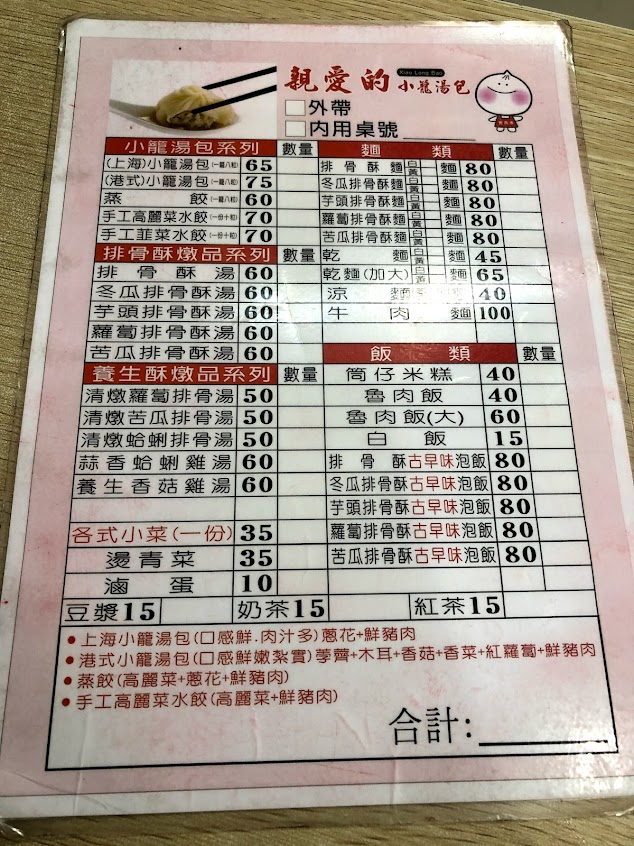 親愛的 Xiao Long Bao 小龍湯包
□外帶
□內用桌號
小龍湯包系列 數量
(上海)小龍湯包(一籠八粒) 65
(港式)小龍湯包(一籠八粒) 75
蒸餃(一籠八粒) 60
手工高麗菜水餃(一份十粒) 70
手工韮菜水餃(一份十粒) 70
排骨酥燉品系列 數量
排骨酥湯 60
冬瓜排骨酥湯 60
芋頭排骨酥湯 60
蘿蔔排骨酥湯 60
苦瓜排骨酥湯 60
養生酥燉品系列 數量
清燉蘿蔔排骨湯 50
清燉苦瓜排骨湯 50
清燉蛤蜊排骨湯 50
蒜香蛤蜊雞湯 60
養生香菇雞湯 60
各式小菜(一份) 35
燙青菜 35
滷蛋 10
麵類 數量
排骨酥麵 白 黃 麵 80
冬瓜排骨酥麵 白 黃 麵 80
芋頭排骨酥麵 白 黃 麵 80
蘿蔔排骨酥麵 白 黃 麵 80
苦瓜排骨酥麵 白 黃 麵 80
乾麵 白 黃 麵 45
乾麵(加大) 白 黃 麵 65
涼麵 40
牛肉麵 100
飯類 數量
筒仔米糕 40
魯肉飯 40
魯肉飯(大) 60
白飯 15
排骨酥古早味泡飯 80
冬瓜排骨酥古早味泡飯 80
芋頭排骨酥古早味泡飯 80
蘿蔔排骨酥古早味泡飯 80
苦瓜排骨酥古早味泡飯 80
豆漿 15 奶茶 15 紅茶 15
●上海小龍湯包(口感鮮.肉汁多)蔥花+鮮豬肉
●港式小龍湯包(口感鮮嫩紮實)荸薺+木耳+香菇+香菜+紅蘿蔔+鮮豬肉
●蒸餃(高麗菜+蔥花+鮮豬肉)
●手工高麗菜水餃(高麗菜+鮮豬肉)
合計: